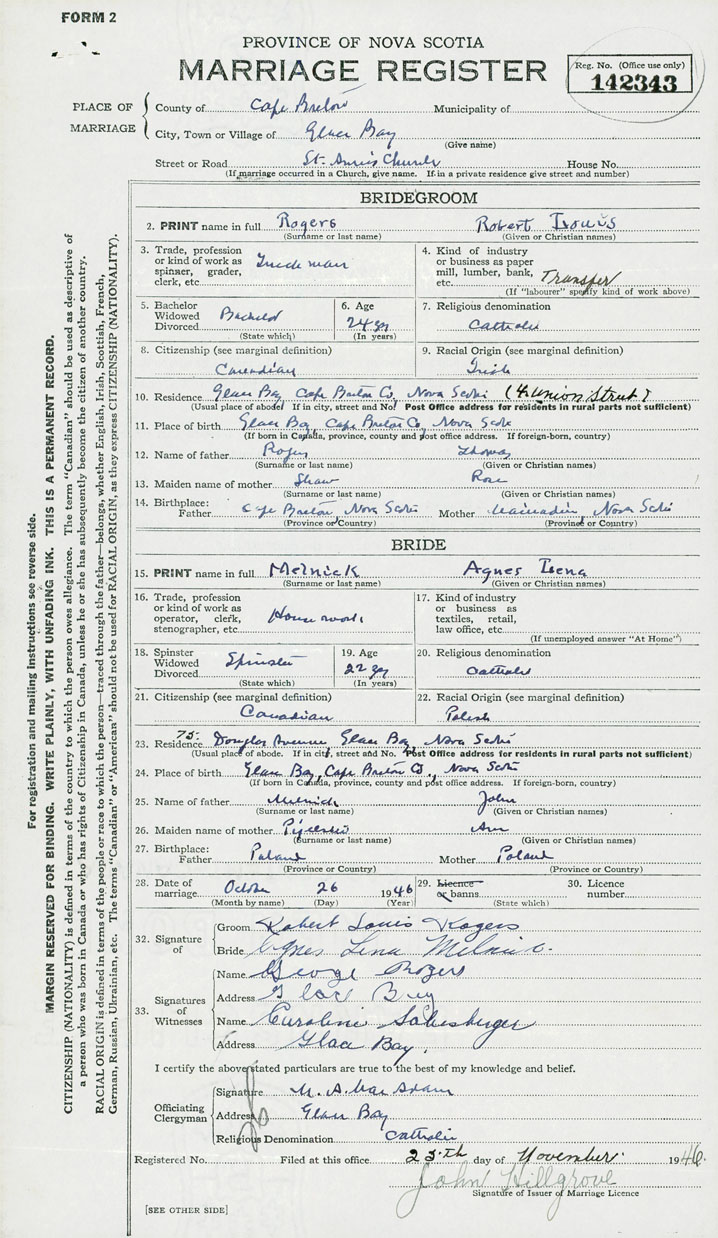 FORM 2
PROVINCE OF NOVA SCOTIA
MARRIAGE REGISTER
Reg. No. (Office use only)
142343
PLACE OF MARRIAGE
County of Cape Breton Municipality of
City, Town or Village of Glace Bay
(Give name)
Street or Road St. Anne's Church House No.
(If marriage occurred in a Church, give name. If in a private residence give street and number)
BRIDEGROOM
2. PRINT name in full Rogers Robert Louis
(Surname or last name) (Given or Christian names)
3. Trade, profession or kind of work as spinner, grader, clerk, etc.
4. Kind of industry or business as paper mill, lumber, bank, etc. Transfer
(If "labourer" specify kind of work above)
5. Bachelor Widowed Divorced Bachelor
(State which)
6. Age 24 yr
(In years)
7. Religious denomination
Catholic
8. Citizenship (see marginal definition)
Canadian
9. Racial Origin (see marginal definition)
Irish
10. Residence Glace Bay, Cape Breton Co, Nova Scotia (4 Union Street)
(Usual place of abode) If in city, street and No. Post Office address for residents in rural parts not sufficient)
11. Place of birth Glace Bay, Cape Breton Co, Nova Scotia
(If born in Canada, province, county and post office address. If foreign-born, country)
12. Name of father Rogers Thomas
(Surname or last name) (Given or Christian names)
13. Maiden name of mother Shaw Rose
(Surname or last name) (Given or Christian names)
14. Birthplace: Father Cape Breton Nova Scotia Mother Nova Scotia
(Province or Country) (Province or Country)
BRIDE
15. PRINT name in full Melnick Agnes Lena
(Surname or last name) (Given or Christian names)
16. Trade, profession or kind of work as operator, clerk, stenographer, etc. Housework
17. Kind of industry or business as textiles, retail, law office, etc.
(If unemployed answer "At Home")
18. Spinster Widowed Divorced Spinster
(State which)
19. Age 22 yr
(In years)
20. Religious denomination
Catholic
21. Citizenship (see marginal definition)
Canadian
22. Racial Origin (see marginal definition)
Polish
23. Residence 75. Douglas Avenue Glace Bay, Nova Scotia
(Usual place of abode. If in city, street and No. Post Office address for residents in rural parts not sufficient)
24. Place of birth Glace Bay, Cape Breton Co., Nova Scotia
(If born in Canada, province, county and post office address. If foreign-born, country)
25. Name of father Melnick John
(Surname or last name) (Given or Christian names)
26. Maiden name of mother Ann
(Surname or last name) (Given or Christian names)
27. Birthplace: Father Poland Mother Poland
(Province or Country) (Province or Country)
28. Date of marriage October 26 1946
(Month by name) (Day) (Year)
29. Licence or banns
(State which)
30. Licence number
32. Signature of
Groom Robert Louis Rogers
Bride Agnes Lena Melnick
33. Signatures of Witnesses
Name George Rogers
Address Glace Bay
Name Caroline
Address Glace Bay.
I certify the above stated particulars are true to the best of my knowledge and belief.
Officiating Clergyman
Signature
Address Glace Bay
Religious Denomination Catholic
Registered No. Filed at this office 25th day of November 1946.
John Hillgrove
Signature of Issuer of Marriage Licence
[SEE OTHER SIDE]
For registration and mailing instructions see reverse side.
MARGIN RESERVED FOR BINDING. WRITE PLAINLY, WITH UNFADING INK. THIS IS A PERMANENT RECORD.
CITIZENSHIP (NATIONALITY) is defined in terms of the country to which the person owes allegiance. The term "Canadian" should be used as descriptive of
a person who was born in Canada or who has rights of Citizenship in Canada, unless he or she has subsequently become the citizen of another country.
RACIAL ORIGIN is defined in terms of the people or race to which the person—traced through the father—belongs, whether English, Irish, Scottish, French,
German, Russian, Ukrainian, etc. The terms "Canadian" or "American" should not be used for RACIAL ORIGIN, as they express CITIZENSHIP (NATIONALITY).